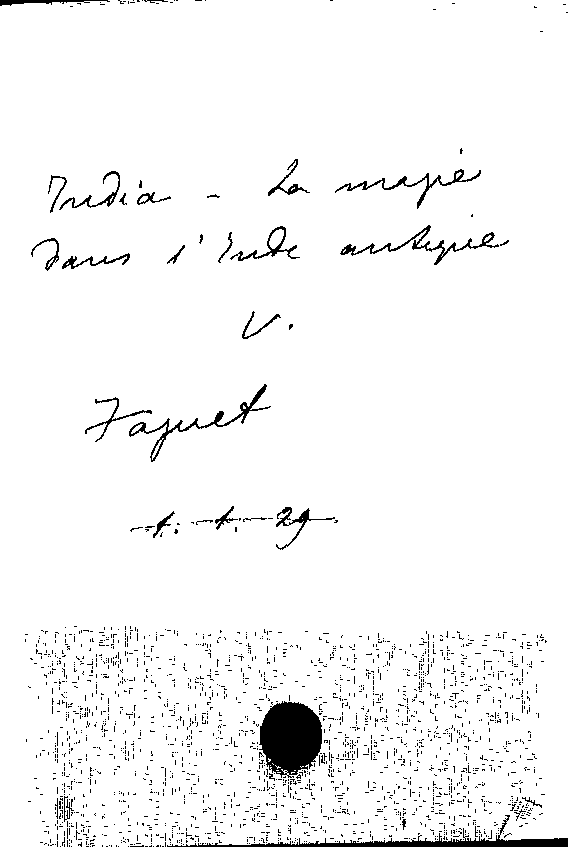 India - La magie
dans l'Inde antique
V.
Faguet
1. 1. 29